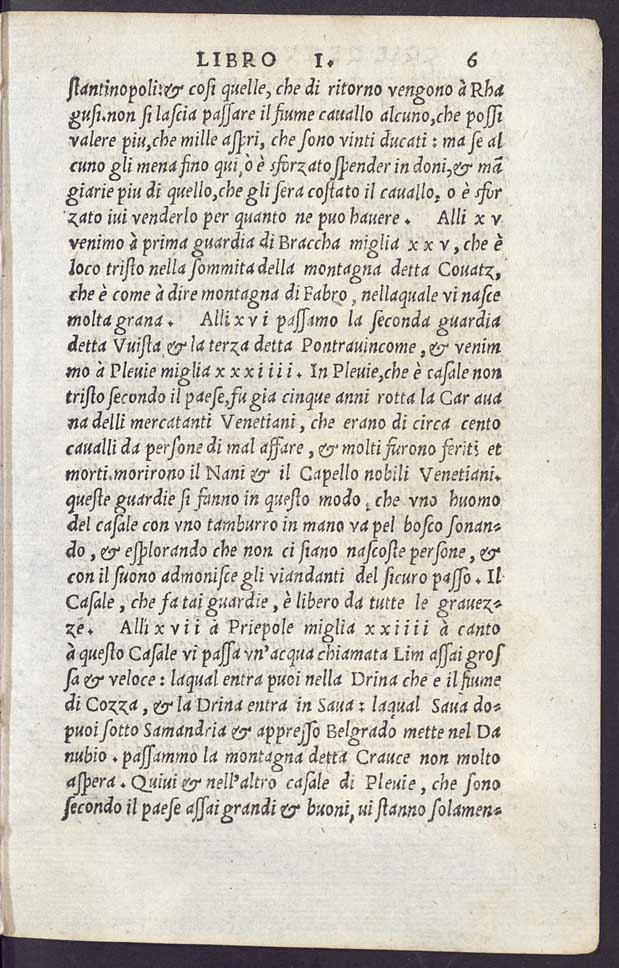 LIBRO I. 6
ſtantinopoli:& coſi quelle, che di ritorno vengono à Rha
guſi.non ſi laſcia paſſare il fiume cauallo alcuno,che poſſi
valere piu,che mille aſpri, che ſono vinti ducati : ma ſe al
cuno gli mena fino qui,ò è sforzato ſpender in doni,& mā
giarie piu di quello,che gli ſera coſtato il cauallo, o è sfor
zato iui venderlo per quanto ne puo hauere . Alli x v
venimo à prima guardia di Braccha miglia x x v , che è
loco triſto nella ſommita della montagna detta Couatz,
che è come à dire montagna di Fabro , nellaquale vi naſce
molta grana . Alli x v i paſſamo la ſeconda guardia
detta Vuiſta & la terza detta Pontrauincome , & venim
mo à Pleuie miglia x x x i i i i . In Pleuie,che è caſale non
triſto ſecondo il paeſe,fu gia cinque anni rotta la Car aua
na delli mercatanti Venetiani , che erano di circa cento
caualli da perſone di mal affare , & molti furono feriti et
morti.morirono il Nani & il Capello nobili Venetiani.
queſte guardie ſi fanno in queſto modo , che vno huomo
del caſale con vno tamburro in mano va pel boſco ſonan-
do , & eſplorando che non ci ſiano naſcoſte perſone , &
con il ſuono admoniſce gli viandanti del ſicuro paſſo . Il
Caſale , che fa tai guardie , è libero da tutte le grauez=
ze . Alli x v i i à Priepole miglia x x i i i i à canto
à queſto Caſale vi paſſa vn'acqua chiamata Lim aſſai groſ
ſa & veloce : laqual entra puoi nella Drina che e il fiume
di Cozza , & la Drina entra in Saua : laqual Saua do=
puoi ſotto Samandria & appreſſo Belgrado mette nel Da
nubio . paſſammo la montagna detta Crauce non molto
aſpera . Quiui & nell'altro caſale di Pleuie , che ſono
ſecondo il paeſe aſſai grandi & buoni, ui ſtanno ſolamen=